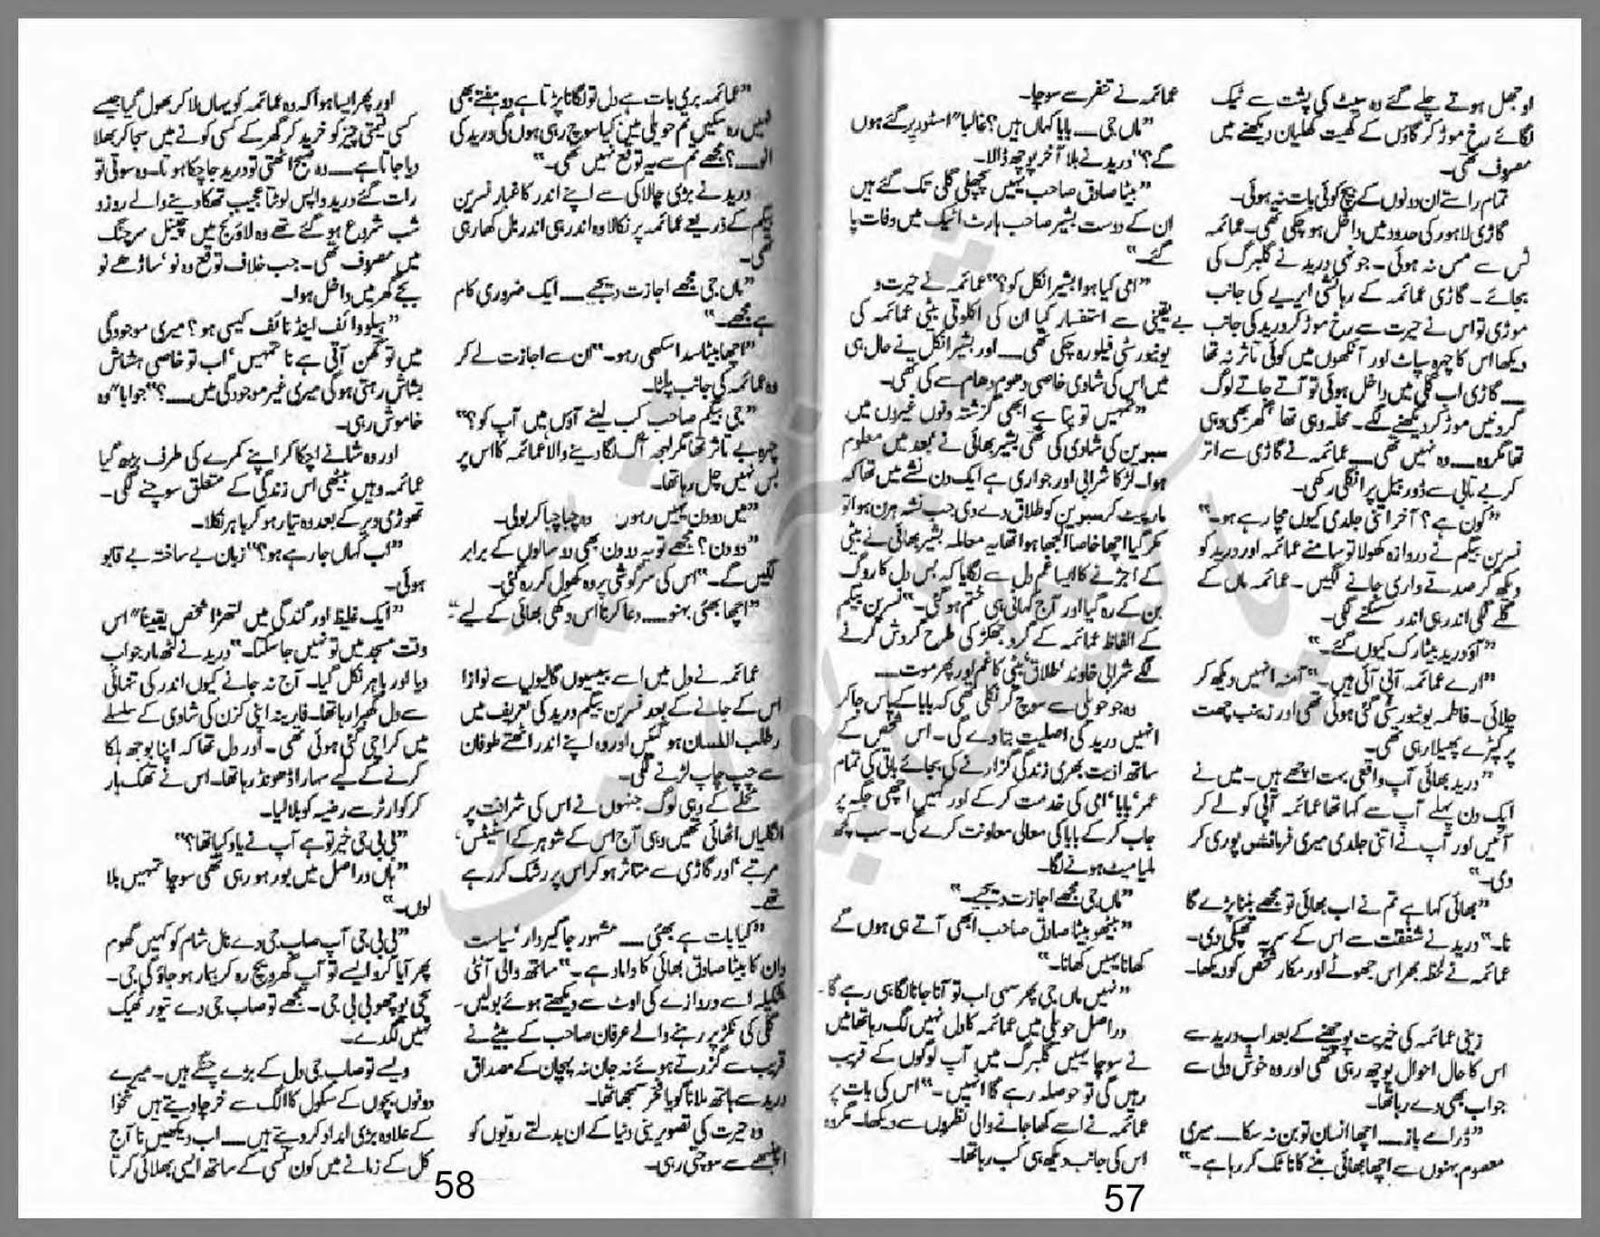 اوجھل ہوتے چلے گئے وہ سیٹ کی پشت سے ٹیک
لگائے رخ موڑ کر گاؤں کے کھیت کھلیان دیکھنے میں
مصروف تھی۔
تمام راستے ان دونوں کے بیچ کوئی بات نہ ہوئی۔
گاڑی لاہور کی حدود میں داخل ہو چکی تھی۔ عمائمہ
ٹس سے مس نہ ہوئی۔ جونہی درید نے گلبرگ کی
بجائے۔ گاڑی عمائمہ کے رہائشی ایریے کی جانب
موڑی تو اس نے حیرت سے رخ موڑ کر درید کی جانب
دیکھا اس کا چہرہ سپاٹ اور آنکھوں میں کوئی تاثر نہ تھا
ــــ گاڑی اب گلی میں داخل ہوئی تو آتے جاتے لوگ
گردنیں موڑ کر دیکھنے لگے۔ محلہ وہی تھا ’گھر بھی وہی
تھا مگر وہ ـــــ وہ نہیں تھی ـــــ عمائمہ نے گاڑی سے اتر
کر بے تابی سے ڈور بیل پر انگلی رکھی۔
”کون ہے؟ آخر اتنی جلدی کیوں مچا رہے ہو۔“
نسرین بیگم نے دروازہ کھولا تو سامنے عمائمہ اور درید کو
دیکھ کر صدقے واری جانے لگیں۔ عمائمہ ماں کے
گلے لگی اندر ہی اندر سسکنے لگی۔
”آؤ درید بیٹا رک کیوں گئے۔“
”ارے عمائمہ آپی آئی ہیں۔“ آمنہ انہیں دیکھ کر
چلائی۔ فاطمہ یونیورسٹی گئی ہوئی تھی اور زینب چھت
پر کپڑے پھیلا رہی تھی۔
”درید بھائی آپ واقعی بہت اچھے ہیں۔ میں نے
ایک دن پہلے آپ سے کہا تھا عمائمہ آپی کو لے کر
آئیں اور آپ نے اتنی جلدی میری فرمائش پوری کر
دی۔“
”بھائی کہا ہے تم نے اب بھائی تو مجھے بننا پڑے گا
نا۔“ درید نے شفقت سے اس کے سر پہ تھپکی دی۔
عمائمہ نے لحظہ بھر اس جھوٹے اور مکار شخص کو دیکھا۔
زینی عمائمہ کی خیریت پوچھنے کے بعد اب درید سے
اس کا حال احوال پوچھ رہی تھی اور وہ خوش دلی سے
جواب بھی دے رہا تھا۔
”ڈرامے باز ـــــ اچھا انسان تو بن نہ سکا ـــــ میری
معصوم بہنوں سے اچھا بھائی بننے کا ناٹک کر رہا ہے۔“
عمائمہ نے تنفر سے سوچا۔
”ماں جی ـــــ بابا کہاں ہیں؟ غالبا“ اسٹور پر گئے ہوں
گے؟“ درید نے بلا آخر پوچھ ڈالا۔
”بیٹا صادق صاحب یہیں پچھلی گلی تک گئے ہیں
ان کے دوست بشیر صاحب ہارٹ اٹیک میں وفات پا
گئے۔“
”امی کیا ہوا بشیر انکل کو؟“ عمائمہ نے حیرت و
بے یقینی سے استفسار کیا ان کی اکلوتی بیٹی عمائمہ کی
یونیورسٹی فیلو رہ چکی تھی ـــــ اور بشیر انکل نے حال ہی
میں اس کی شادی خاصی دھوم دھام سے کی تھی۔
”تمہیں تو پتا ہے ابھی گزشتہ دنوں غیروں میں
سبرین کی شادی کی تھی بشیر بھائی نے بعد میں معلوم
ہوا۔ لڑکا شرابی اور جواری ہے ایک دن نشے میں تھا کہ
مار پیٹ کر سبرین کو طلاق دے دی جب نشہ ہرن ہوا تو
مکر گیا اچھا خاصا الجھا ہوا تھا یہ معاملہ بشیر بھائی نے بیٹی
کے اجڑنے کا ایسا غم دل سے لگایا کہ بس دل کا روگ
بن کے رہ گیا اور آج کہانی ہی ختم ہو گئی۔“ نسرین بیگم
کے الفاظ عمائمہ کے گرد جھکڑ کی طرح گردش کرنے
لگے شرابی خاوند ’طلاق‘ بیٹی کا غم اور پھر موت ـــــ
وہ جو حویلی سے سوچ کر نکلی تھی کہ بابا کے پاس جا کر
انہیں درید کی اصلیت بتا دے گی۔ اس شخص کے
ساتھ اذیت بھری زندگی گزارنے کی بجائے باقی کی تمام
عمر ’بابا‘ امی کی خدمت کر کے اور کہیں اچھی جگہ پر
جاب کر کے بابا کی معالی معاونت کرے گی۔ سب کچھ
ملیا میٹ ہونے لگا۔
”ماں جی مجھے اجازت دیجیے۔“
”بیٹھو بیٹا صادق صاحب ابھی آتے ہی ہوں گے
کھانا یہیں کھانا۔“
”نہیں ماں جی پھر سہی اب تو آنا جانا لگا ہی رہے گا۔
دراصل حویلی میں عمائمہ کا دل نہیں لگ رہا تھا میں
نے سوچا یہیں گلبرگ میں آپ لوگوں کے قریب
رہیں گی تو حوصلہ رہے گا انہیں۔“ اس کی بات پر
عمائمہ نے اسے کھا جانے والی نظروں سے دیکھا۔ مگر وہ
اس کی جانب دیکھ ہی کب رہا تھا۔
57
”عمائمہ بری بات ہے دل تو لگانا پڑتا ہے دو ہفتے بھی
نہیں رہ سکیں تم حویلی میں کیا سوچ رہی ہوں گی درید کی
ـــــ؟ مجھے تم سے یہ توقع نہیں تھی۔“
درید نے بڑی چالاکی سے اپنے اندر کا غبار نسرین
بیگم کے ذریعے عمائمہ پر نکالا وہ اندر ہی اندر بل کھا رہی
تھی۔
”ماں جی مجھے اجازت دیجیے ـــــ ایک ضروری کام
ہے مجھے۔“
”اچھا بیٹا سدا سکھی رہو۔“ ان سے اجازت لے کر
وہ عمائمہ کی جانب پلٹا۔
”جی بیگم صاحب کب لینے آؤں میں آپ کو؟“
چہرہ بے تاثر تھا مگر لہجہ آگ لگا دینے والا عمائمہ کا اس پر
بس نہیں چل رہا تھا۔
”میں دو دن یہیں رہوں وہ چبا چبا کر بولی۔
”دو دن؟ مجھے تو یہ دو دن بھی دو سالوں کے برابر
لگیں گے۔“ اس کی سرگوشی پر وہ کھول کر رہ گئی۔
”اچھا بھئی بہنو ـــــ دعا کرنا اس دکھی بھائی کے لیے“
عمائمہ نے دل میں اسے بیسیوں گالیوں سے نوازا
اس کے جانے کے بعد نسرین بیگم درید کی تعریف میں
رطب اللسان ہو گئیں اور وہ اپنے اندر اٹھتے طوفان
سے چپ چاپ لڑنے لگی۔
محلے کے وہی لوگ جنہوں نے اس کی شرافت پر
انگلیاں اٹھائی تھیں وہی آج اس کے شوہر کے اسٹیٹس‘
مرتبے‘ اور گاڑی سے متاثر ہو کر اس پر رشک کر رہے
تھے۔
”کیا بات ہے بھئی ـــــ مشہور جاگیردار‘ سیاست
دان کا بیٹا صادق بھائی کا داماد ہے۔“ ساتھ والی آنٹی
شکیلہ اسے دروازے کی اوٹ سے دیکھتے ہوئے بولیں۔
گلی کی نکڑ پر رہنے والے عرفان صاحب کے بیٹے نے
قریب سے گزرتے ہوئے نہ جان نہ پہچان کے مصداق
درید سے ہاتھ ملانا گویا فخر سمجھا تھا۔
وہ حیرت کی تصویر بنی دنیا کے ان بدلتے رویوں کو
اچنبھے سے سوچتی رہی۔
اور پھر ایسا ہوا کہ وہ عمائمہ کو یہاں لا کر بھول گیا جیسے
کسی قیمتی چیز کو خرید کر گھر کے کسی کونے میں سجا کر بھلا
دیا جاتا ہے ـــــ وہ صبح اٹھتی تو درید جا چکا ہوتا۔ وہ سوتی تو
رات گئے درید واپس لوٹتا عجیب تھکا دینے والے روز و
شب شروع ہو گئے تھے وہ لاؤنج میں چینل سرچنگ
میں مصروف تھی۔ جب خلاف توقع وہ نو‘ ساڑھے نو
بجے گھر میں داخل ہوا۔
”ہیلو وائف اینڈ نائف کیسی ہو؟ میری موجودگی
میں تو گھن آتی ہے نا تمہیں‘ اب تو خاصی ہشاش
بشاش رہتی ہو گی میری غیر موجودگی میں ـــــ؟“ جوابا“ وہ
خاموش رہی۔
اور وہ شانے اچکا کر اپنے کمرے کی طرف بڑھ گیا
عمائمہ وہیں بیٹھی اس زندگی کے متعلق سوچنے لگی۔
تھوڑی دیر کے بعد وہ تیار ہو کر باہر نکلا۔
”اب کہاں جا رہے ہو؟“ زبان بے ساختہ بے قابو
ہوئی۔
”ایک غلیظ اور گندگی میں لتھڑا شخص یقینا“ اس
وقت مسجد میں تو نہیں جا سکتا۔“ درید نے لٹھ مار جواب
دیا اور باہر نکل گیا۔ آج نہ جانے کیوں اندر کی تنہائی
سے دل گھبرا رہا تھا۔ فارینہ اپنی کزن کی شادی کے سلسلے
میں کراچی گئی ہوئی تھی۔ اور دل تھا کہ اپنا بوجھ ہلکا
کرنے کے لیے سہارا ڈھونڈ رہا تھا۔ اس نے تھک ہار
کر کوارٹر سے رضیہ کو بلا لیا۔
”بی بی جی خیر تو ہے آپ نے یاد کیا تھا؟“
”ہاں دراصل میں بور ہو رہی تھی سوچا تمہیں بلا
لوں۔“
”بی بی جی آپ صاب جی دے نال شام کو کہیں گھوم
پھر آیا کرو ایسے تو آپ گھر وچ رہ کر بیمار ہو جاؤ گی جی۔
سچی پوچھو بی بی جی۔ مجھے تو صاب جی دے تیور ٹھیک
نہیں لگدے۔
ویسے تو صاب جی دل کے بڑے چنگے ہیں۔ میرے
دونوں بچوں کے سکول کا الگ سے خرچا دیتے ہیں تنخوا
کے علاوہ بڑی امداد کر دیتے ہیں ـــــ اب دیکھیں نا آج
کل کے زمانے میں کون کسی کے ساتھ ایسی بھلائی کرتا
58